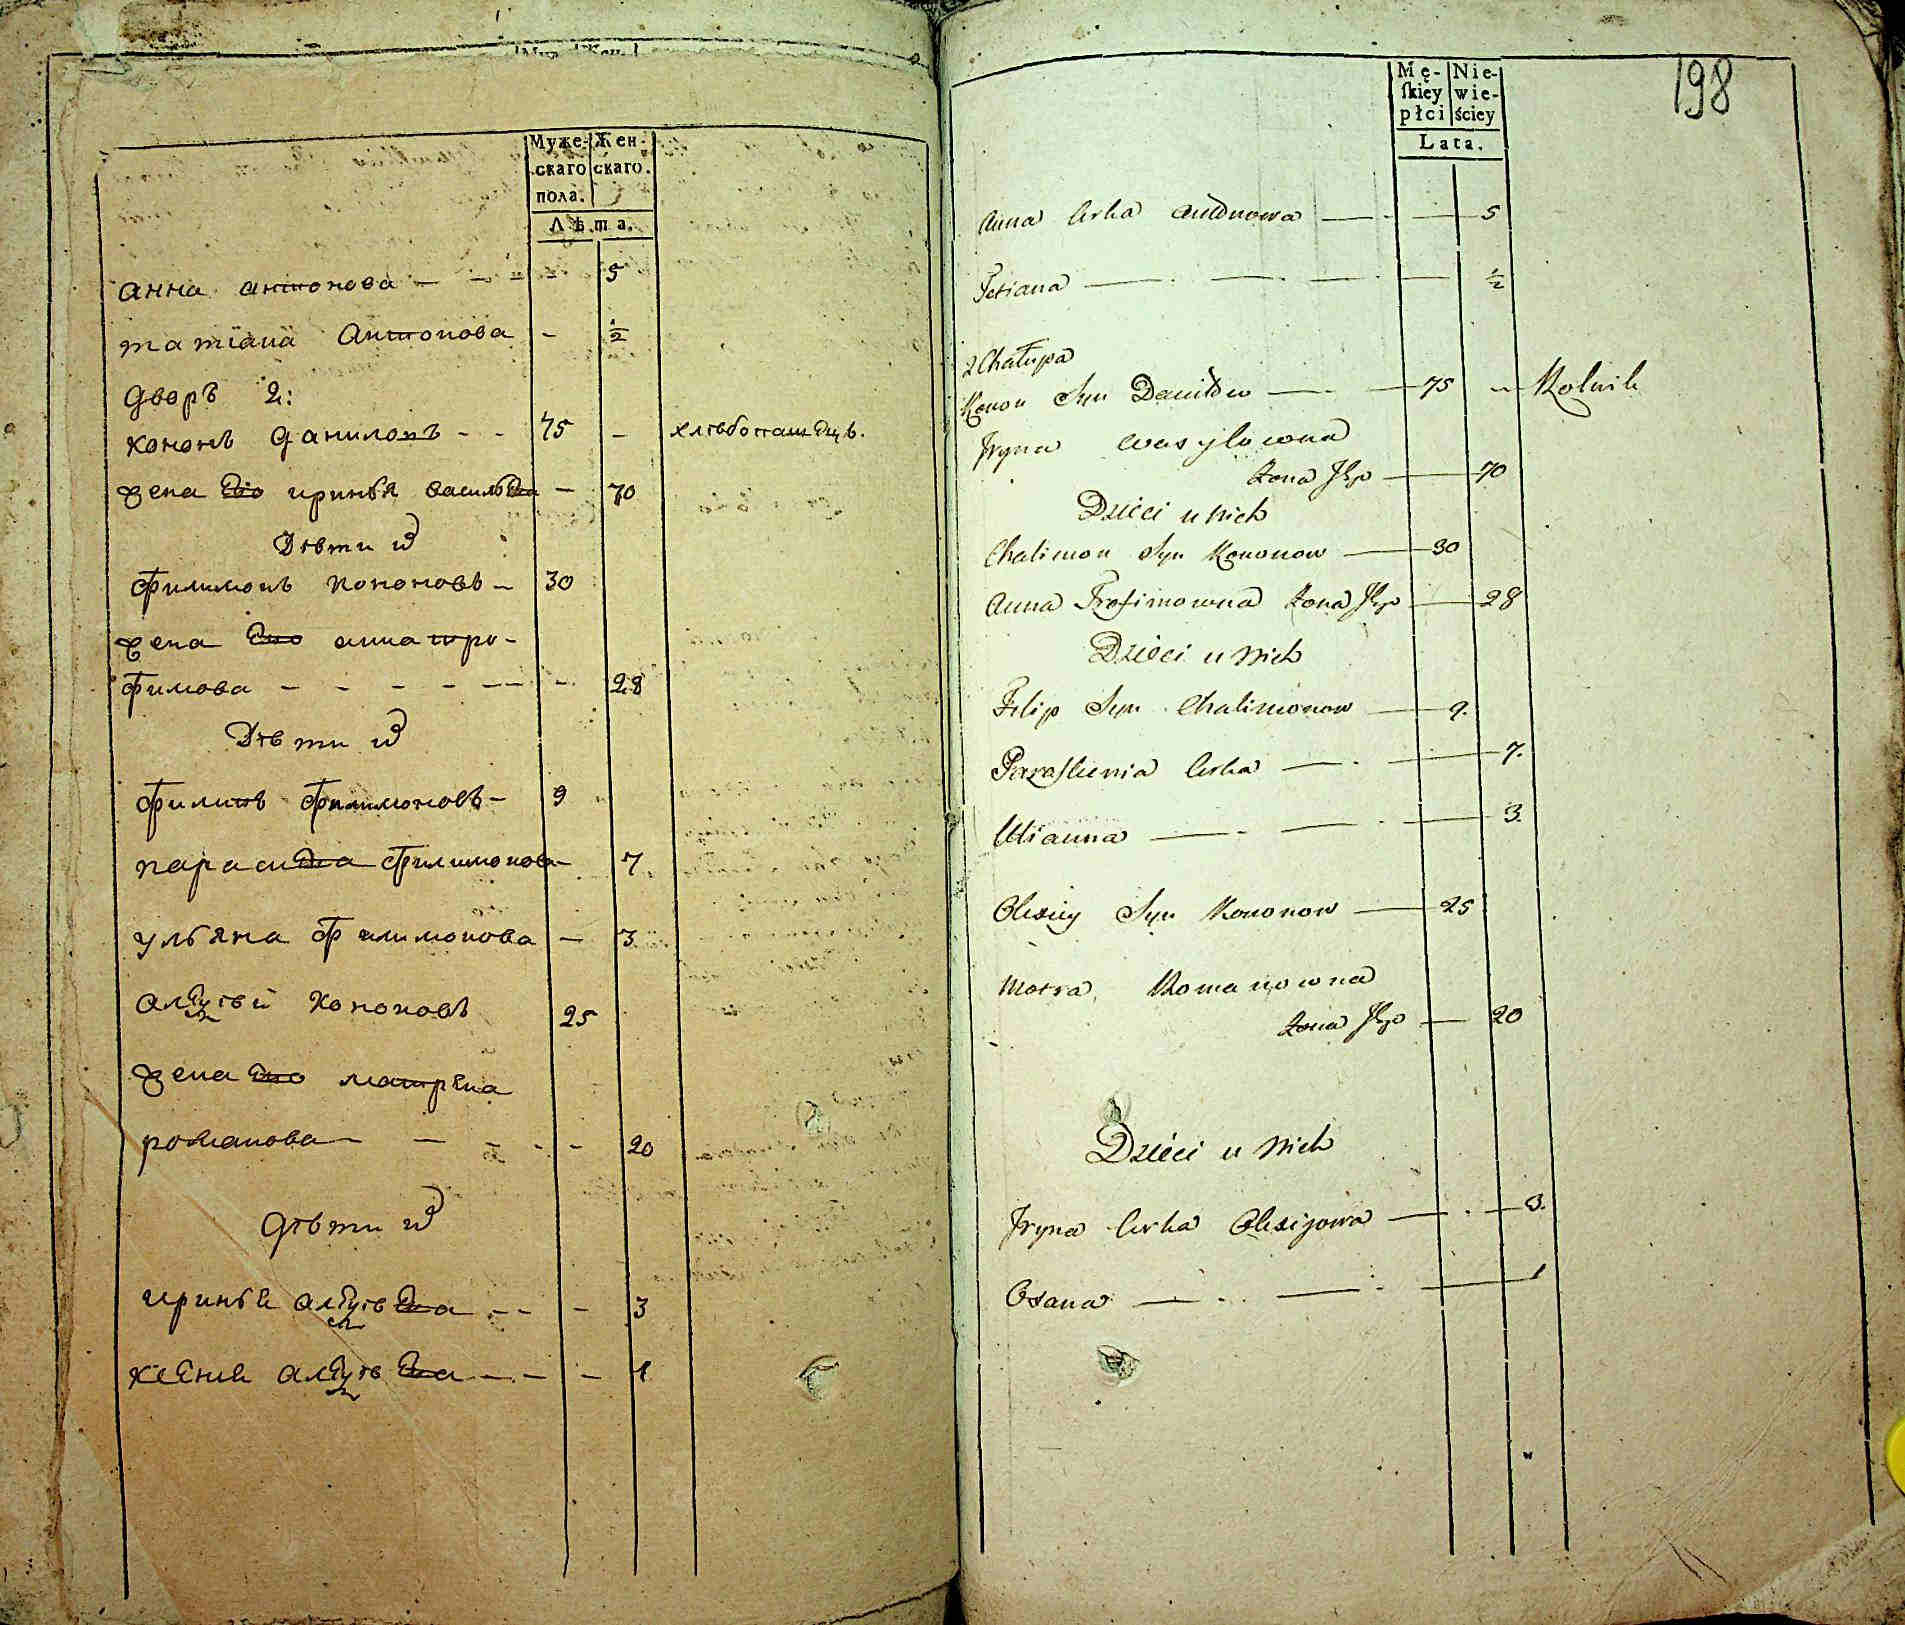 Муже- Жен-
скаго скаго.
пола.
Лѣта.
анна антонова - - - - 5
татiана Антонова - ½
дворъ 2:
кононъ даниловъ - - 75 - хлѣбопашецъ.
жена Его иринья васильева - 70
Дѣти иⷯ
филимонъ кононовъ - 30
жена Его анна тро-
фимова - - - - - - 28
Дѣти иⷯ
филипъ филимоновъ - 9
парасиева филимонова - 7
ульяна филимонова - 3
алеѯѣй кононовъ 25
жена Его матрена
романова - - - - - 20
дѣти иⷯ
иринья алеѯѣева - - - 3
ксенья алеѯѣева - - - 1
198
Mę- Nie-
ſkiey wie-
płci ściey
Lata.
Anna Corka Antonowa — - — 5
Tetiana — - — - — ½
2 Chałupa
Konon Syn Daniłow — - — 75 - Rolnik
Iryna Wasylowna
Zona Jego — 70
Dzieci u Nich
Chalimon Syn Kononow — 30
Anna Trofimowna Zona Jego — 28
Dzieci u Nich
Filip Syn Chalimonow — 9.
Paraskienia Corka — - — 7.
Ulianna — - — - — 3.
Olexiey Syn Kononow — 25
Motra Romanowna
Zona Jego — 20
Dzieci u Nich
Iryna Corka Olexijowa — - — 3.
Oxana — - - — - — 1